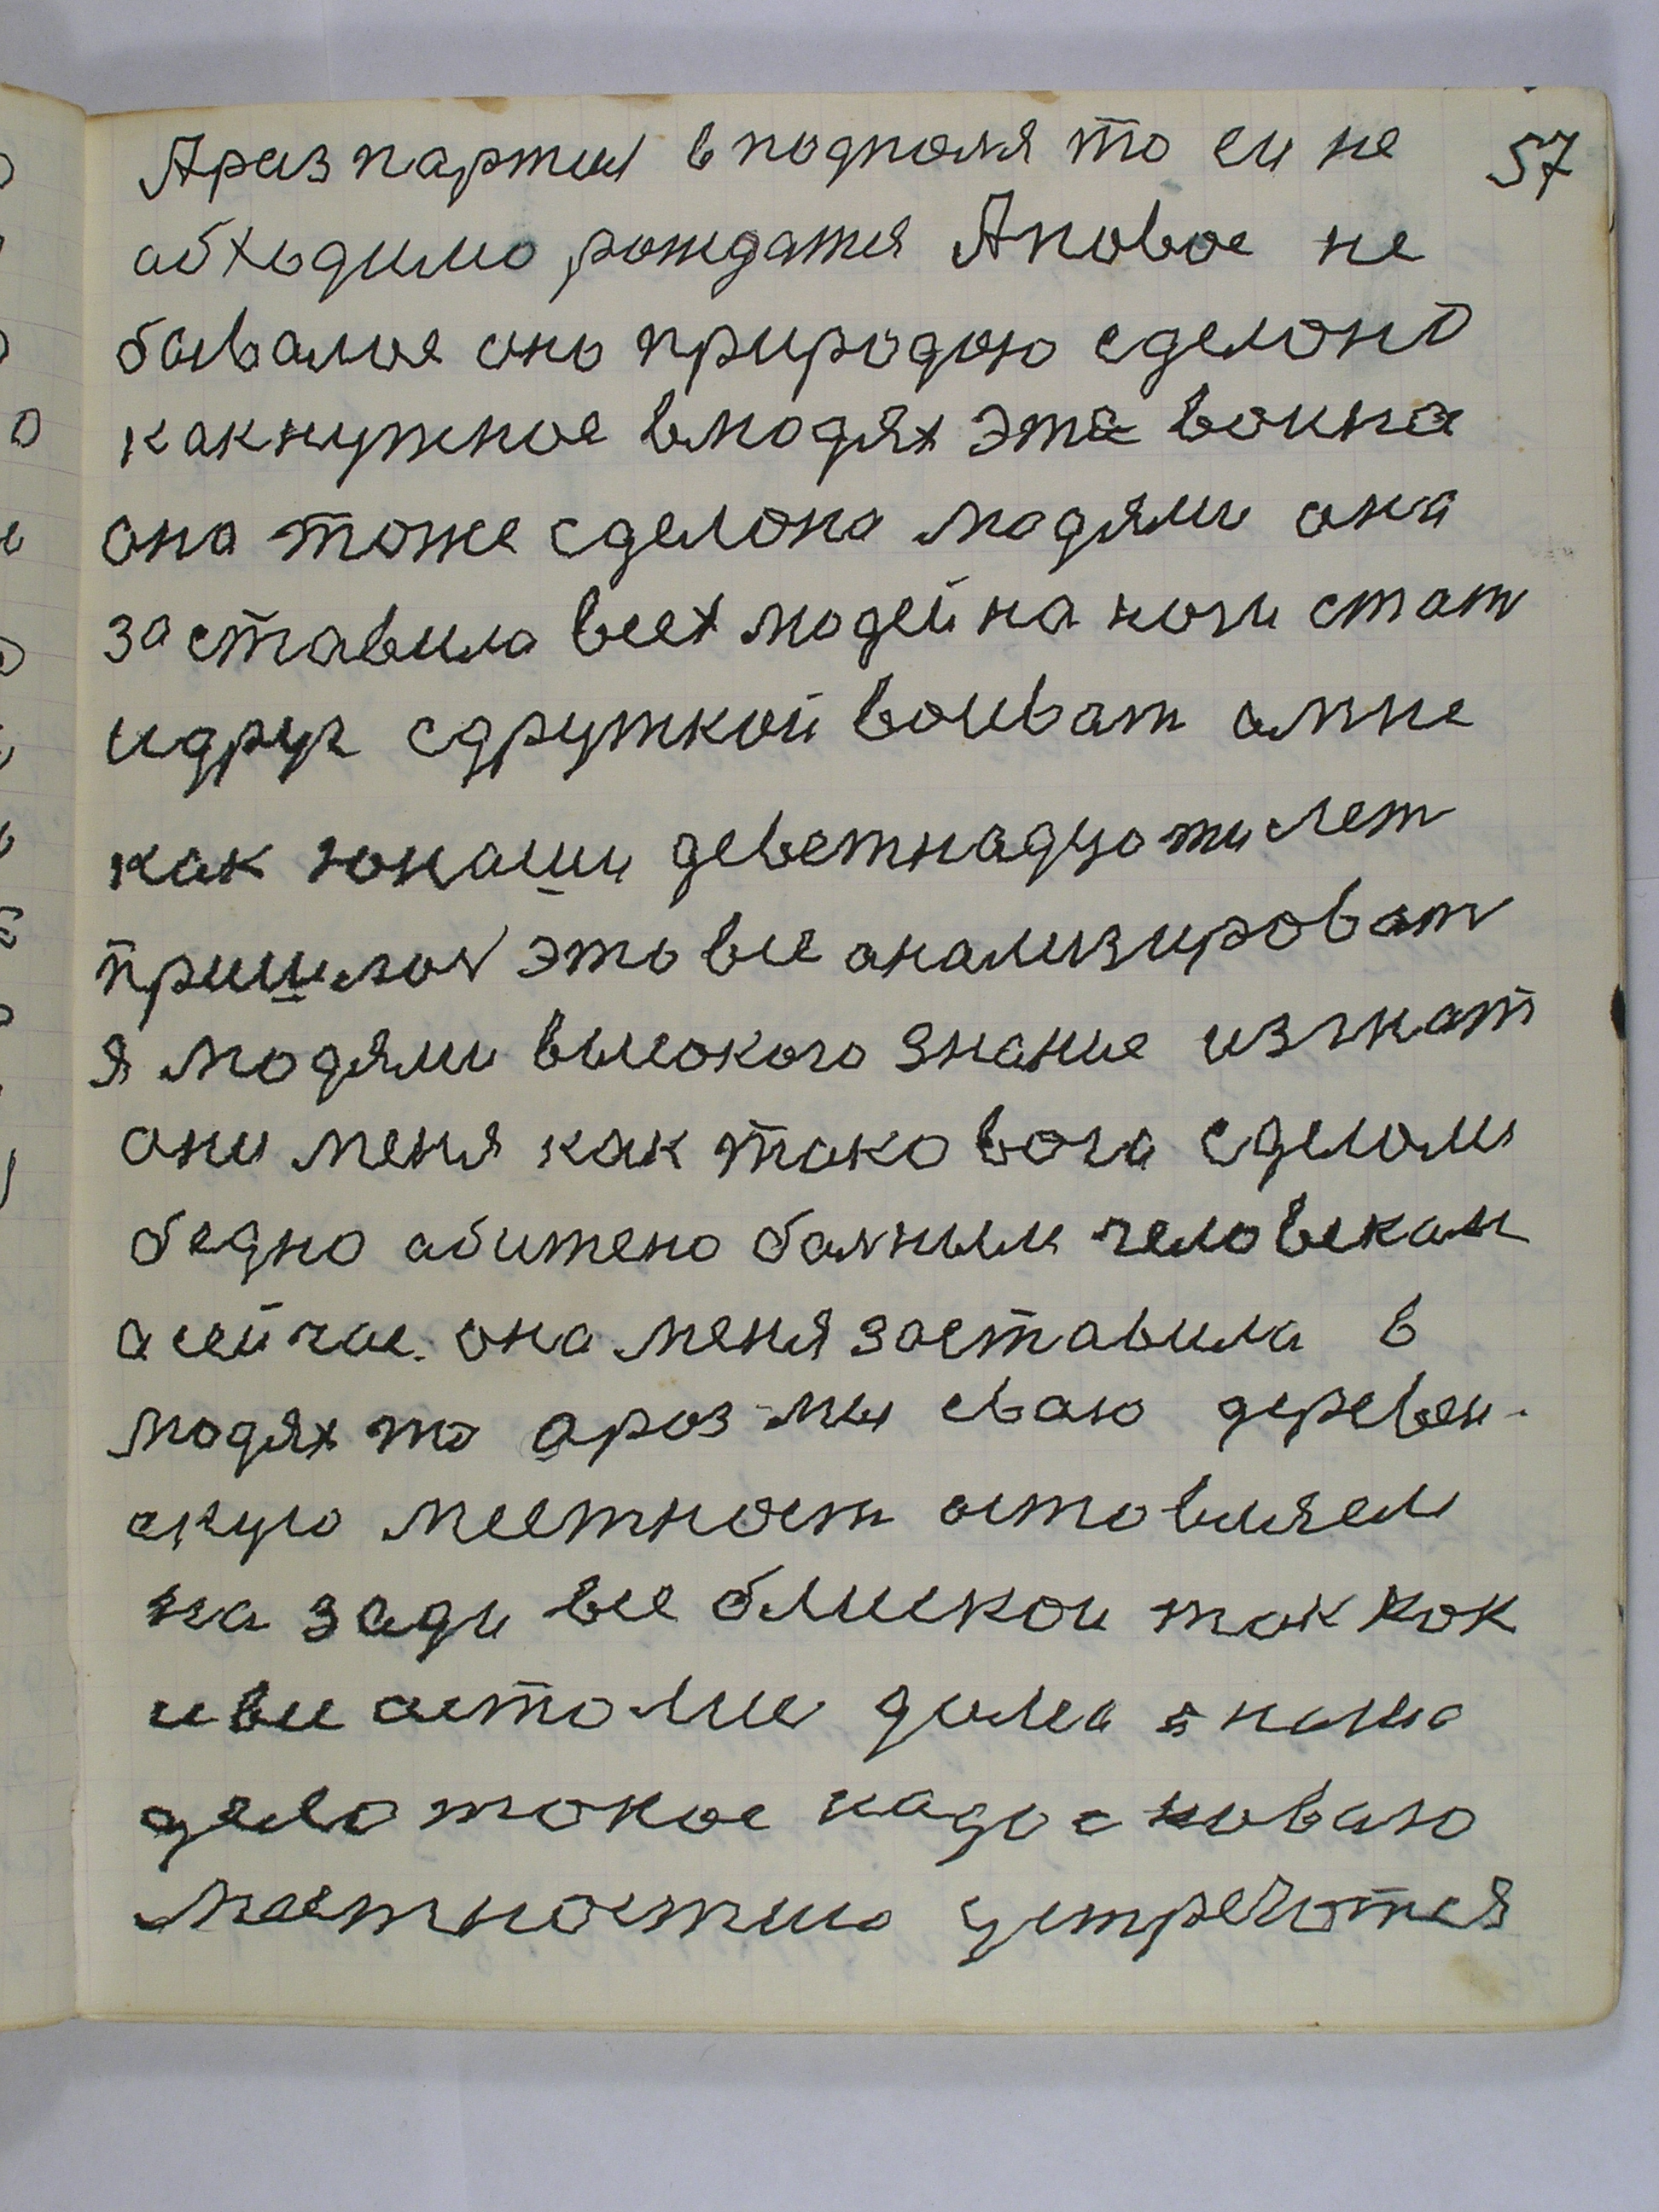 Араз партия в подполя то еи не 57
абходимо рождатся А новое не
бывалое оно природою сделоно
как нужное в людях эта воина
она тоже сделона людями она
заставила всех людей на ноги стат
и друг с дружкой воиват а мне
как юнаши деветнадцати лет
пришлос это все анализироват
я людями высокого знание изгнат
они меня как таковога сделоли
бедно абижено болным человекам
а сейчас. она меня заставила в
людях то а раз мы сваю деревен-
скую местност астовляем
на зади все блискои так как
и все астолис дома а наша
дела такое надо с новаю
местностию устречатся